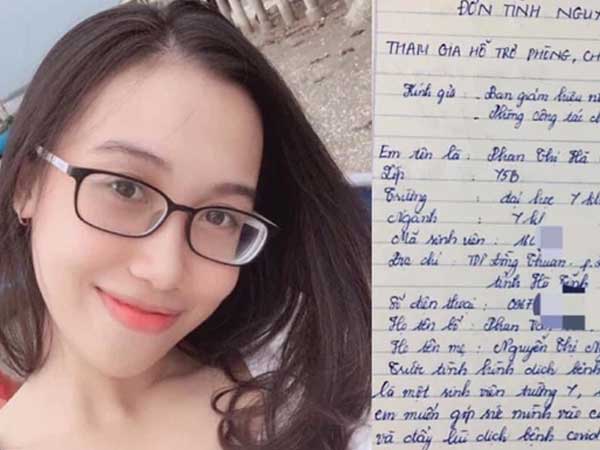 ĐƠN TÌNH NGUY
THAM GIA HỖ TRỢ PHÒNG, CH
Kính gửi : Ban giám hiệu n
Phòng công tác c
Em tên là : Phan Thị Hà
Lớp : Y5B
Trường : đại học Y kh
Ngành : Y kh
Mã sinh viên :
Địa chỉ : TDP Đông Thuận
tỉnh Hà Tĩnh
Số điện thoại : 0967
Họ tên bố : Phan Văn
Họ tên mẹ : Nguyễn Thị N
Trước tình hình dịch bệnh
là một sinh viên trường Y,
em muốn góp sức mình vào c
và đẩy lùi dịch bệnh covid